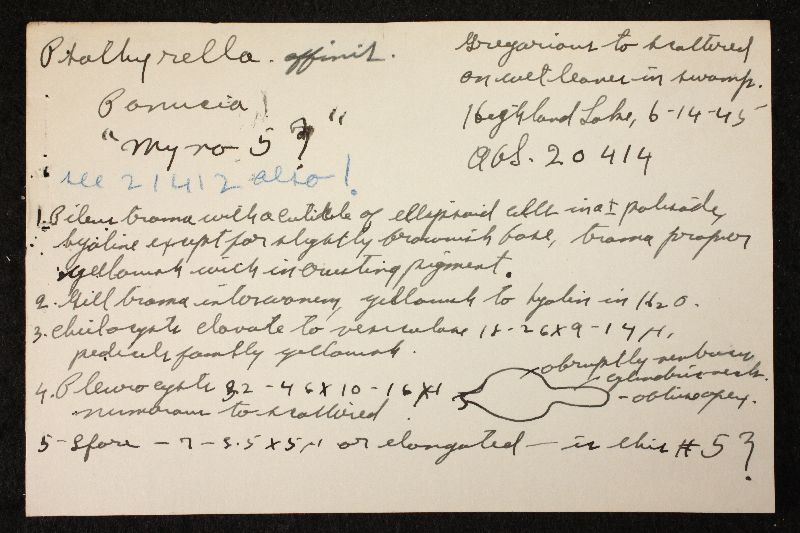 Psathyrella. affinis.
Panucia!
"Myro 5?"
see 21412 also!
Gregarious to scattered
on wet leaves in swamp.
Highland Lake, 6-14-45
AHS. 20414
1. Pileus trama with a cuticle of ellipsoid cells in a ± palisade,
hyaline except for slightly brownish base, trama proper
yellowish with incrusting pigment.
2. Gill trama interwoven, yellowish to hyalin in H2O.
3. Cheilocysts clavate to vesiculose 18-26 x 9-14 µ,
pedicels faintly yellowish.
4. Pleurocysts 32-46 x 10-16 µ
numerous to scattered
abruptly
cylindric neck.
- obtuse apex.
5- Spore - 7-8.5 x 5 µ or elongated - is this # 5?